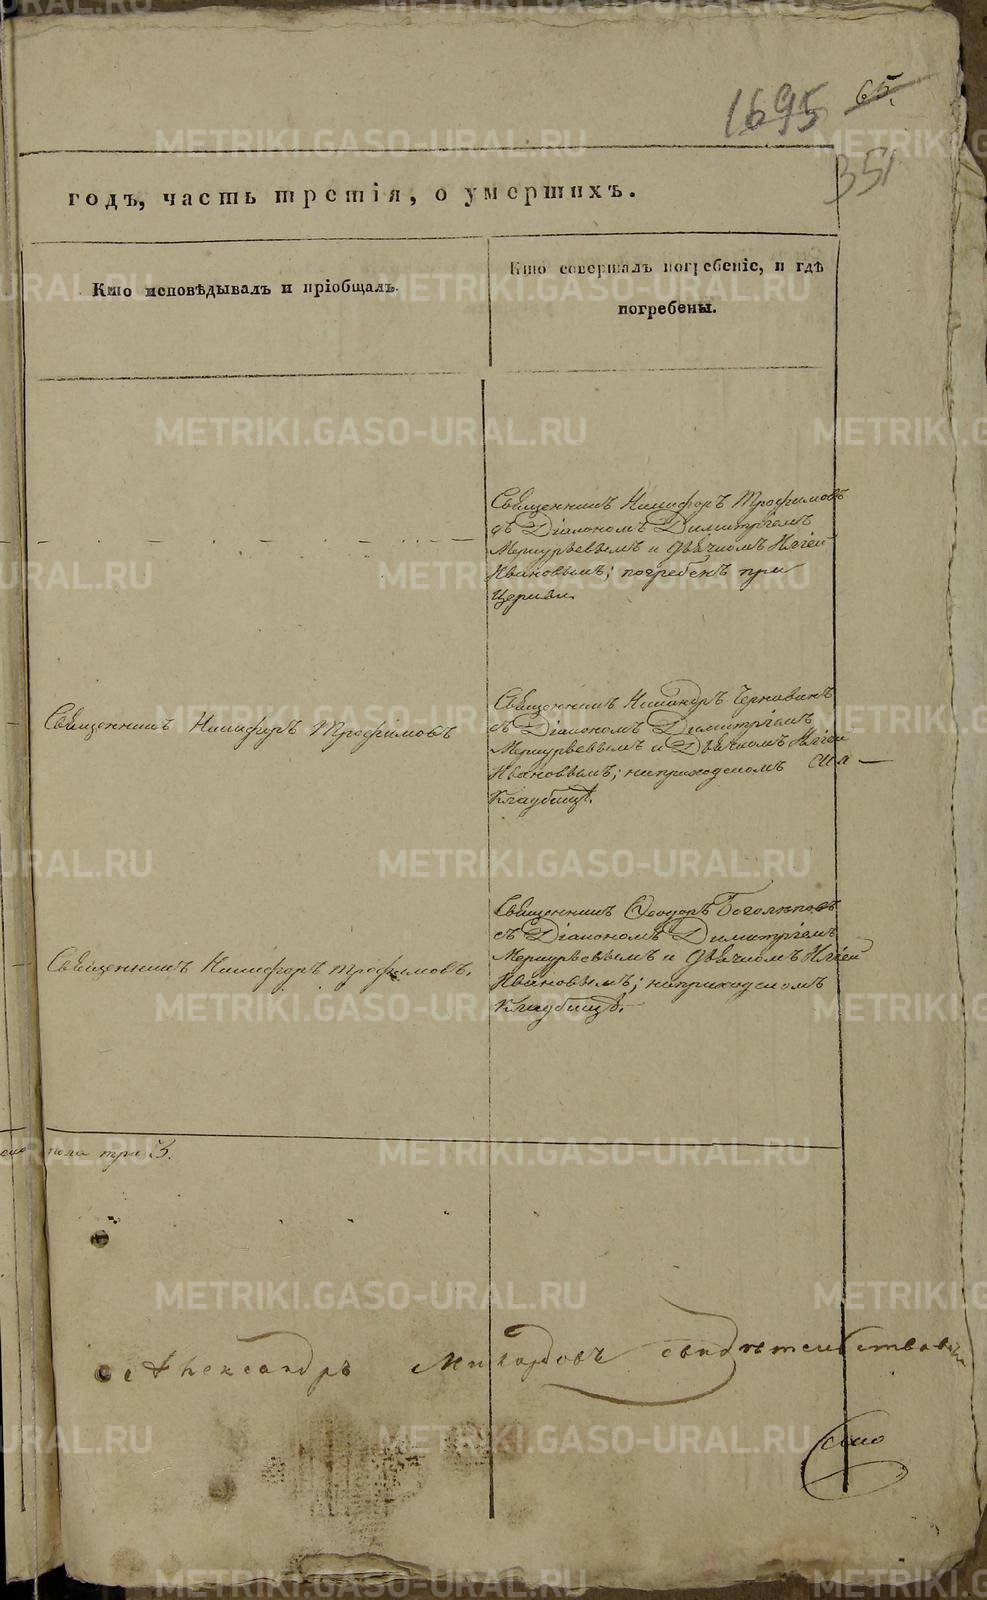 1695 65.
351
годъ, часть третія, о умершихъ.
Кто исповѣдывалъ и пріобщалъ.
Кто совершалъ погребеніе, и гдѣ
погребены.
Священникъ Никифоръ Трофимовъ
съ Діакономъ Димитріемъ
Меркурьевымъ и дьячкомъ
Ивановымъ; погребенъ при
Церкви.
Священникъ Никифоръ Трофимовъ
Священникъ Никандръ Чернавинъ
съ Діакономъ Димитріемъ
Меркурьевымъ и Дьячкомъ
Ивановымъ; на приходскомъ
Кладбищѣ.
Священникъ Никифоръ Трофимовъ.
Священникъ Ѳеодоръ Боголѣповъ
съ Діакономъ Димитріемъ
Меркурьевымъ и дьячкомъ
Ивановымъ; на приходскомъ
Кладбищѣ.
пола три 3.
Александръ свидѣтельствовалъ
METRIKI.GASO-URAL.RU